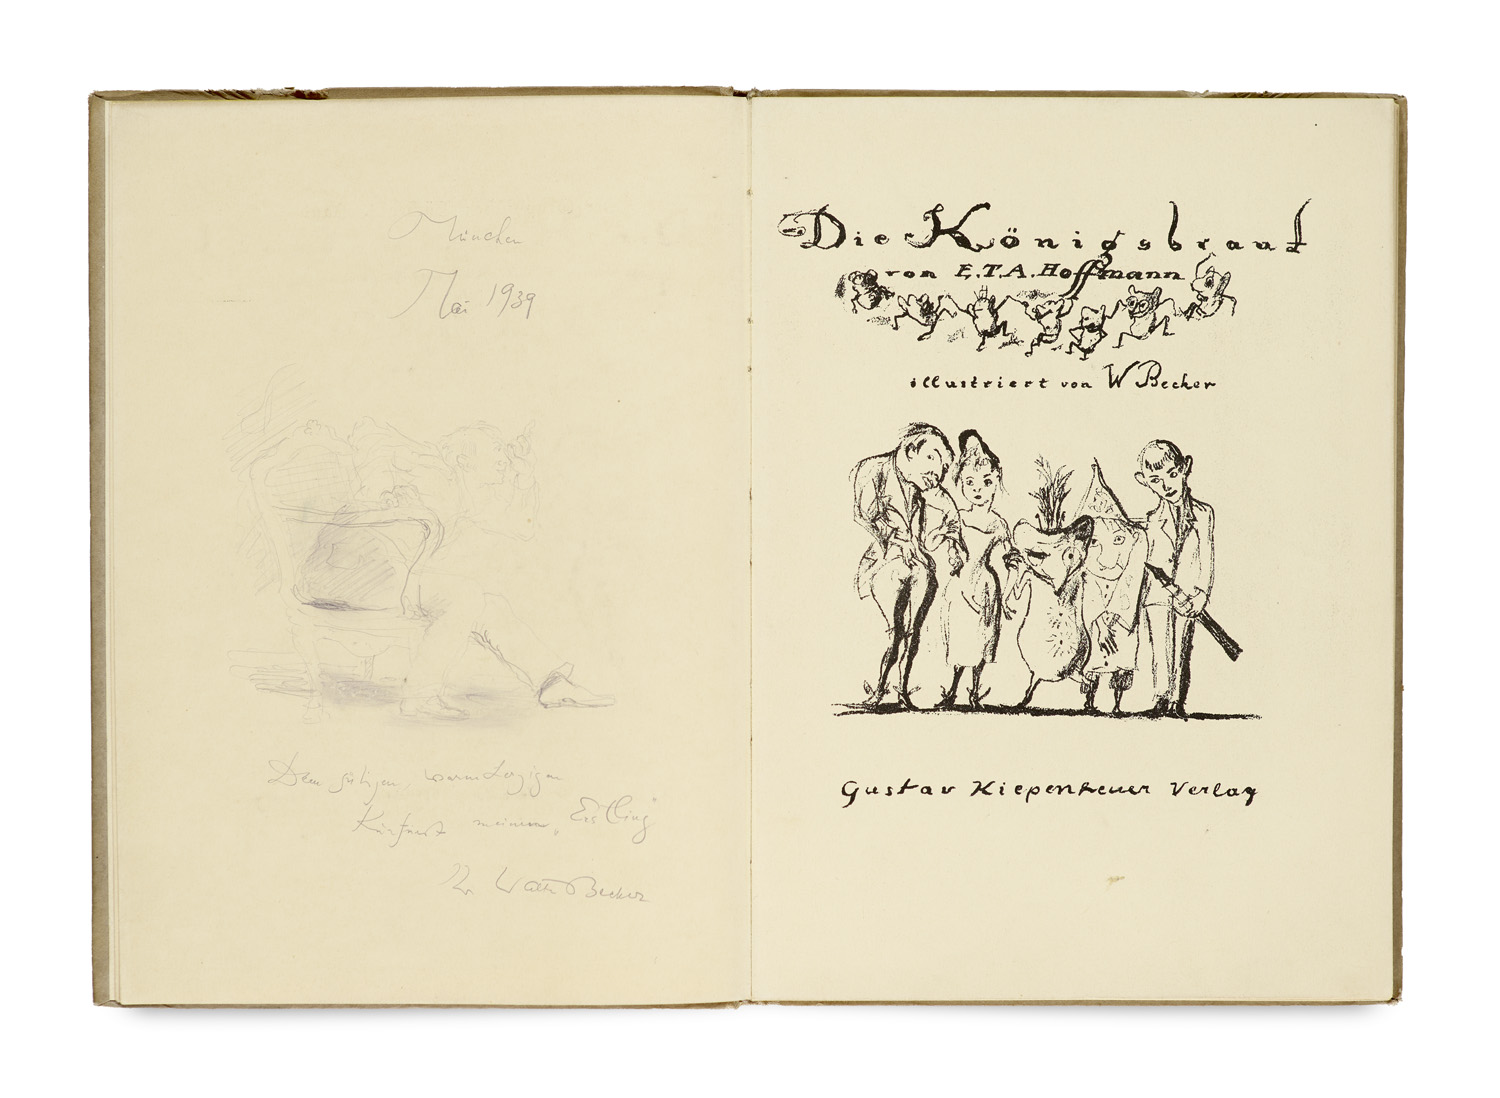 München
Mai 1939
Dem gütigen, warmherzigen
meinem
Walter Becker
Die Königsbraut
von E.T.A. Hoffmann
illustriert von W Becker
Gustav Kiepenheuer Verlag